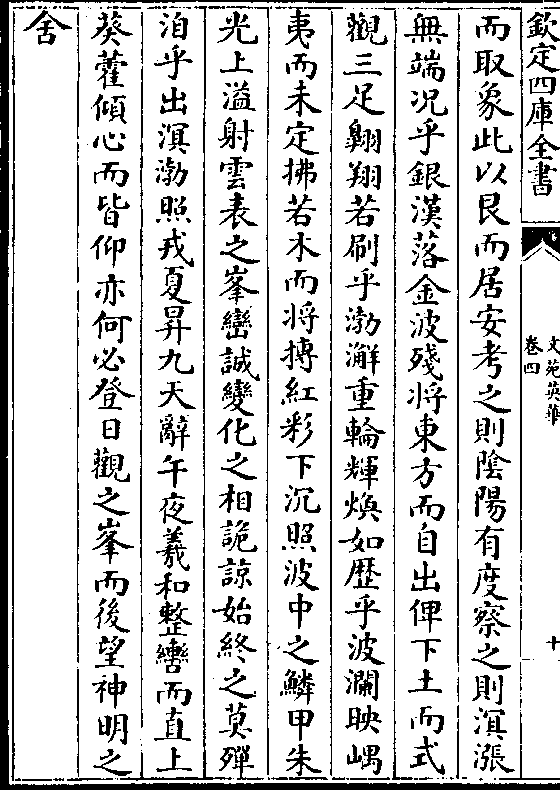 欽定四庫全書
文苑英華
卷四
十
而取象此以艮而居安考之則陰陽有度察之則溟漲
無端况乎銀漢落金波殘将東方而自出俾下土而式
觀三足翺翔若刷乎渤澥重輪輝煥如歴乎波瀾映嵎
夷而未定拂若木而将摶紅彩下沉照波中之鱗甲朱
光上溢射雲表之峯巒誠變化之相詭諒始終之莫殫
洎乎出溟渤照戎夏昇九天辭午夜羲和整轡而直上
葵藿傾心而皆仰亦何必登日觀之峯而後望神明之
舍